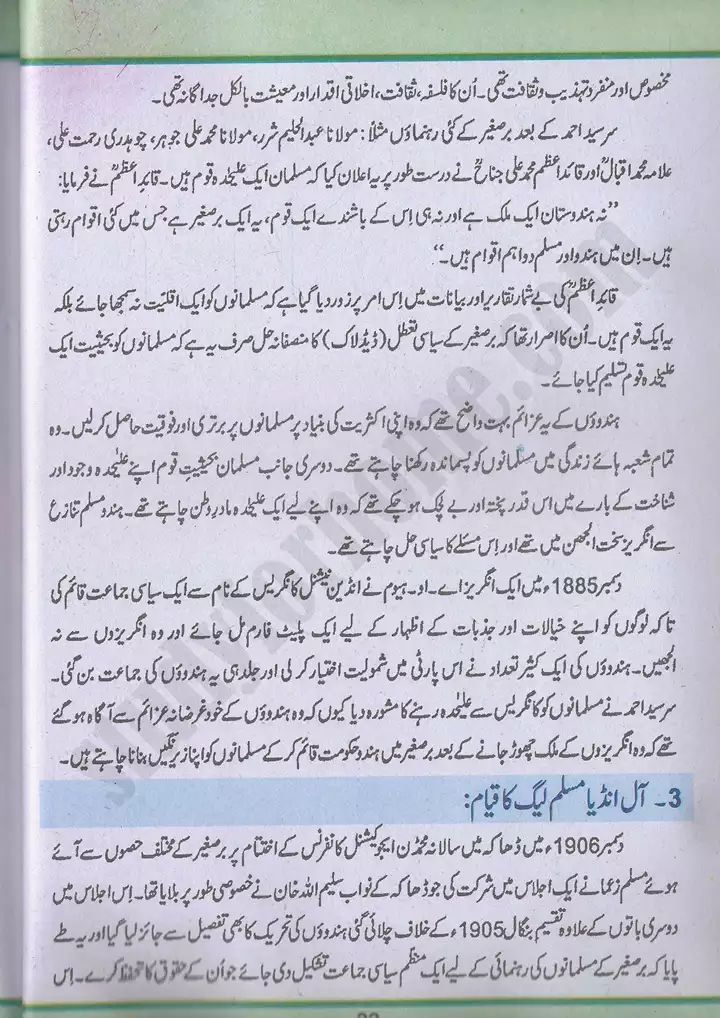 مخصوص اور منفرد تہذیب و ثقافت تھی۔ اُن کا فلسفہ، ثقافت، اخلاقی اقدار اور معیشت بالکل جداگانہ تھی۔
سرسید احمد کے بعد برصغیر کے کئی رہنماؤں مثلاً: مولانا عبدالحلیم شرر، مولانا محمد علی جوہر، چوہدری رحمت علی،
علامہ محمد اقبالؒ اور قائداعظم محمد علی جناحؒ نے درست طور پر یہ اعلان کیا کہ مسلمان ایک علیحٰدہ قوم ہیں۔ قائدِ اعظمؒ نے فرمایا:
”نہ ہندوستان ایک ملک ہے اور نہ ہی اِس کے باشندے ایک قوم، یہ ایک برصغیر ہے جس میں کئی اقوام رہتی
ہیں۔ اِن میں ہندو اور مسلم دو اہم اقوام ہیں۔“
قائدِ اعظمؒ کی بے شمار تقاریر اور بیانات میں اِس امر پر زور دیا گیا ہے کہ مسلمانوں کو ایک اقلیّت نہ سمجھا جائے بلکہ
یہ ایک قوم ہیں۔ اُن کا اصرار تھا کہ برصغیر کے سیاسی تعطل (ڈیڈلاک) کا منصفانہ حل صرف یہ ہے کہ مسلمانوں کو بحیثیت ایک
علیٰحدہ قوم تسلیم کیا جائے۔
ہندوؤں کے یہ عزائم بہت واضح تھے کہ وہ اپنی اکثریت کی بنیاد پر مسلمانوں پر برتری اور فوقیت حاصل کرلیں۔ وہ
تمام شعبہ ہائے زندگی میں مسلمانوں کو پسماندہ رکھنا چاہتے تھے۔ دوسری جانب مسلمان بحیثیتِ قوم اپنے علیٰحدہ وجود اور
شناخت کے بارے میں اس قدر پختہ اور بے لچک ہو چکے تھے کہ وہ اپنے لیے ایک علیٰحدہ مادرِ وطن چاہتے تھے۔ ہندو مسلم تنازع
سے انگریز سخت اُلجھن میں تھے اور اِس مسئلے کا سیاسی حل چاہتے تھے۔
دسمبر 1885ء میں ایک انگریز اے۔ او۔ ہیوم نے انڈین نیشنل کانگریس کے نام سے ایک سیاسی جماعت قائم کی
تاکہ لوگوں کو اپنے خیالات اور جذبات کے اظہار کے لیے ایک پلیٹ فارم مل جائے اور وہ انگریزوں سے نہ
اُلجھیں۔ ہندوؤں کی ایک کثیر تعداد نے اس پارٹی میں شمولیت اختیار کرلی اور جلد ہی یہ ہندوؤں کی جماعت بن گئی۔
سرسید احمد نے مسلمانوں کو کانگریس سے علیٰحدہ رہنے کا مشورہ دیا کیوں کہ وہ ہندوؤں کے خودغرضانہ عزائم سے آگاہ ہو گئے
تھے کہ وہ انگریزوں کے ملک چھوڑ جانے کے بعد برصغیر میں ہندو حکومت قائم کر کے مسلمانوں کو اپنا زیرنگیں بنانا چاہتے ہیں۔
3۔ آل انڈیا مسلم لیگ کا قیام:
دسمبر 1906ء میں ڈھاکہ میں سالانہ محمڈن ایجوکیشنل کانفرنس کے اختتام پر برصغیر کے مختلف حصوں سے آئے
ہوئے مسلم زعما نے ایک اجلاس میں شرکت کی جو ڈھاکہ کے نواب سلیم اللہ خان نے خصوصی طور پر بلایا تھا۔ اِس اجلاس میں
دوسری باتوں کے علاوہ تقسیم بنگال 1905ء کے خلاف چلائی گئی ہندوؤں کی تحریک کا بھی تفصیل سے جائزہ لیا گیا اور یہ طے
پایا کہ برصغیر کے مسلمانوں کی رہنمائی کے لیے ایک منظم سیاسی جماعت تشکیل دی جائے جو اُن کے حقوق کا تحفظ کرے۔ اِس